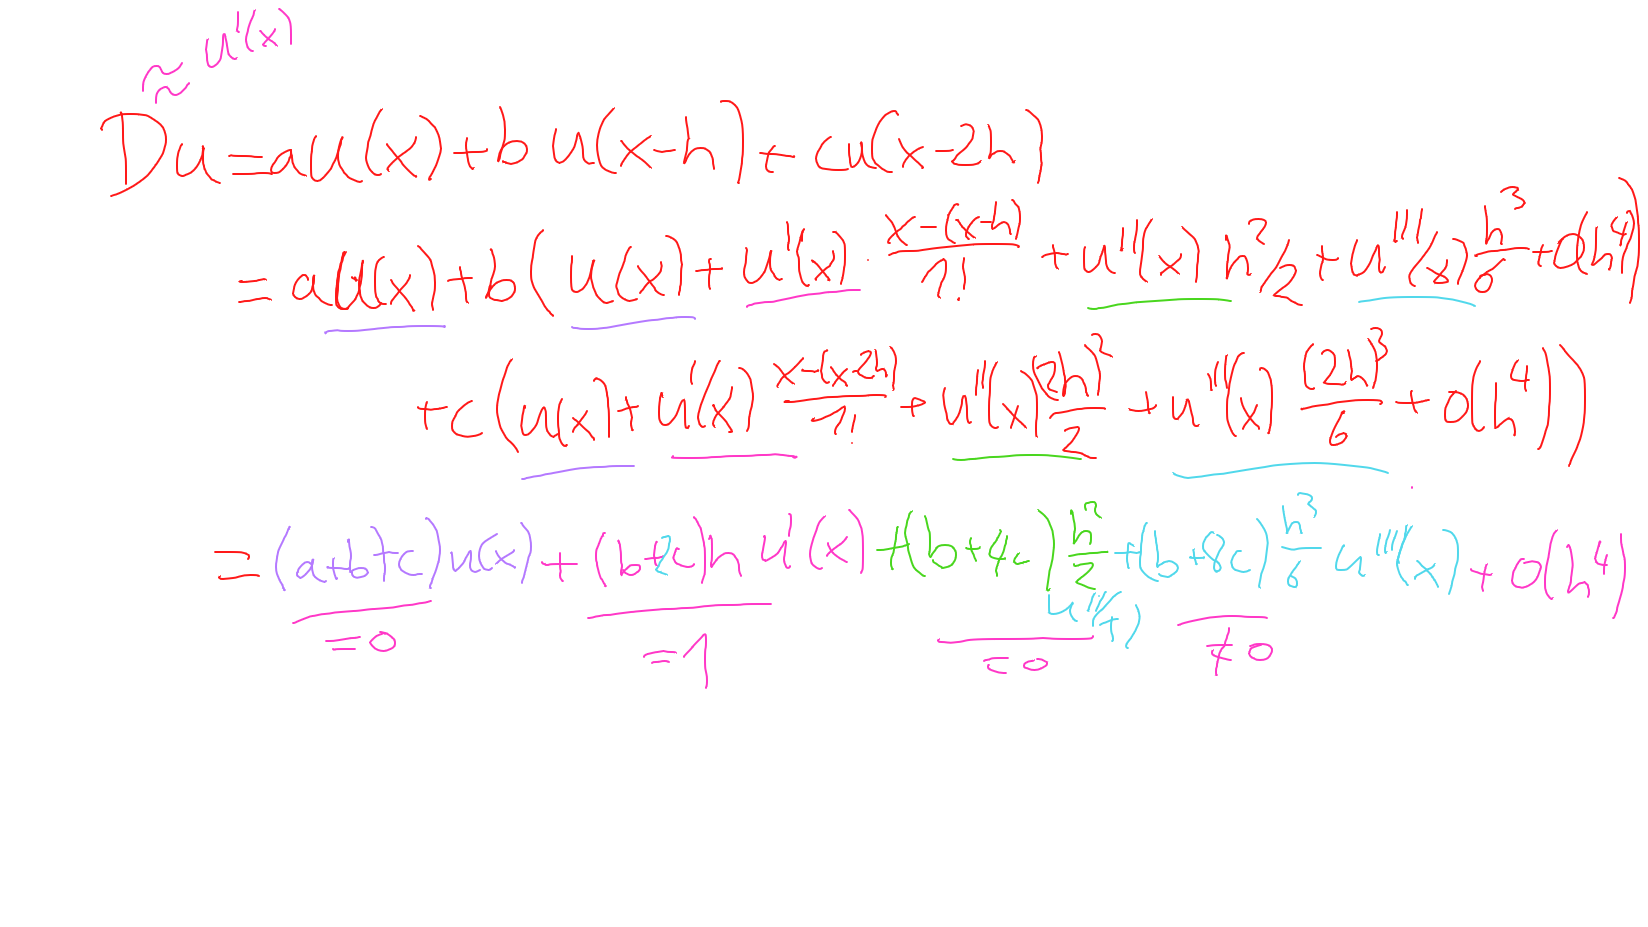 ≈ u'(x)
Du = au(x) + b u(x-h) + cu(x-2h)
= au(x) + b(u(x) + u'(x) · \frac{x-(x-h)}{1!} + u''(x) h²/2 + u'''(x) \frac{h³}{6} + O(h⁴))
+ c(u(x) + u'(x) \frac{x-(x-2h)}{1!} + u''(x) \frac{(2h)²}{2} + u'''(x) \frac{(2h)³}{6} + o(h⁴))
= (a+b+c)u(x) + (b+2c)h u'(x) + (b+4c) \frac{h²}{2} u''(x) + (b+8c) \frac{h³}{6} u'''(x) + O(h⁴)
=0 =1 =0 ≠0